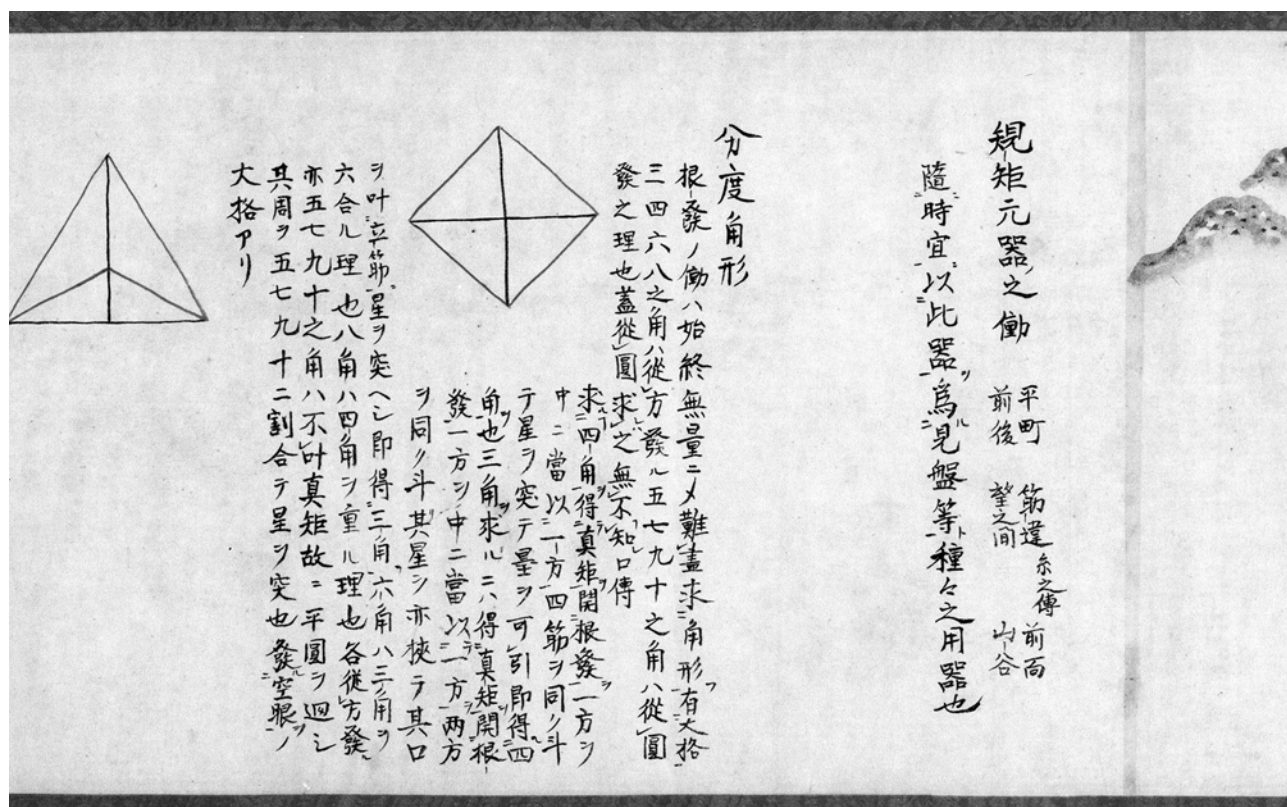 規矩元器之働
平町 筋違糸之傳 前面
前後 望之間 山谷
隨ニ時宜ニ以ニ此器ヲ為ルニ見盤等ト種々之用器也
分度角形
根發ノ働ハ始終無量ニメ難盡求ニ角形ヲ有ニ大格
三四六八之角ハ從レ方發ル五七九十之角ハ從レ圓
發之理也蓋從レ圓求レ之無レ不レ知口傳
求ニ四角ヲ得テ真矩ヲ開根發ヲ一方ヲ
中ニ當以ニ一方ヲ四筋ヲ同ク斗
テ星ヲ突テ墨ヲ可レ引即得ルニ四
角ヲ也三角ヲ求ルニハ得ニ真矩ヲ開根
發一方ヲ中ニ當以テニ一方ヲ両方
ヲ同ク斗其星ヲ亦挾テ其口
ヲ叶ニ立筋ニ星ヲ突ヘシ即得ニ三角ヲ六角ハ三角ヲ
六合ル理也八角ハ四角ヲ重ル理也各從レ方發ル
亦五七九十之角ハ不レ叶真矩故ニ平圓ヲ廻シ
其周ヲ五七九十ニ割合テ星ヲ突也發ルニ空眼ヲノ
大格アリ